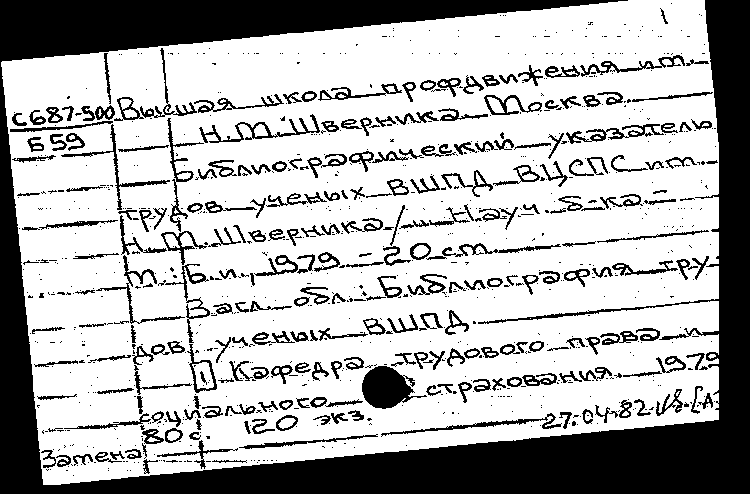 1
С687-500 Высшая школа профдвижения им.
Б59 Н.М.Шверника. Москва.
Библиографический указатель
трудов ученых ВШПД ВЦСПС им.
Н.М.Шверника / Науч. б-ка. -
М.: Б.и., 1979 - 20 см
Загл. обл.: Библиография тру-
дов ученых ВШПД.
1 Кафедра трудового права и
социального страхования. 1979
80 с. 120 экз. 27.04.82
Замена